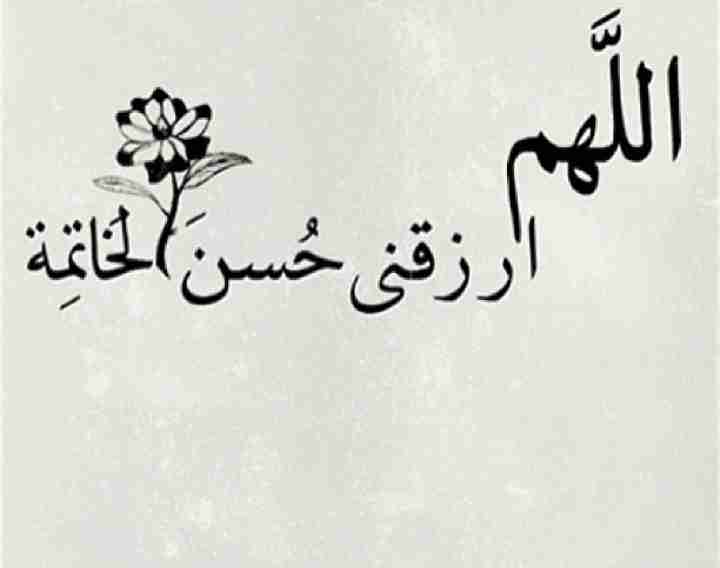 اللَّهم
ارزقنى حُسنَ الخَاتمِة